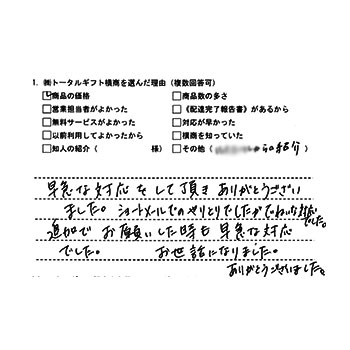 1. ㈱トータルギフト横商を選んだ理由（複数回答可）
□商品の価格 □商品数の多さ
□営業担当者がよかった □《配達完了報告書》があるから
□無料サービスがよかった □対応が早かった
□以前利用してよかったから □横商を知っていた
□知人の紹介（ 様） □その他（ からの紹介）
早急な対応をして頂きありがとうござい
ました。ショートメールでのやりとりでしたがていねいな対応でした。
追加でお願いした時も早急な対応
でした。 お世話になりました。
ありがとうございました。